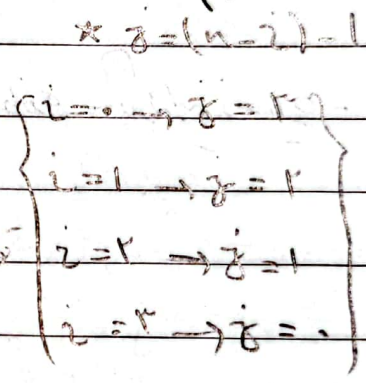 * j = (n - i) - 1
i = ۰ → j = ۳
i = ۱ → j = ۲
i = ۲ → j = ۱
i = ۳ → j = ۰